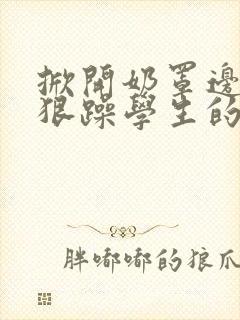 掀開奶罩邊
狠躁學生的
胖嘟嘟的狼爪